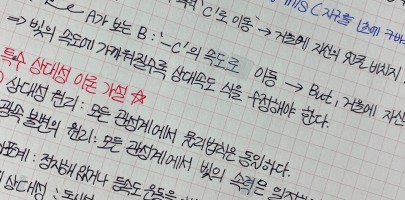 'C'로 이동 → 거울에 자신의 모습 비치지
A가 보는 B : '-C'의 속도로 이동 → But, 거울에 자신
⇒ 빛의 속도에 가까워질수록 상대속도 식을 수정해야 한다.
특수 상대성 이론 가설 ☆
상대성 원리 : 모든 관성계에서 물리법칙은 동일하다.
광속 불변의 원리 : 모든 관성계에서 빛의 속력은 일정
표계 : 정지해 있거나 등속도 운동을
상대성 : 동시